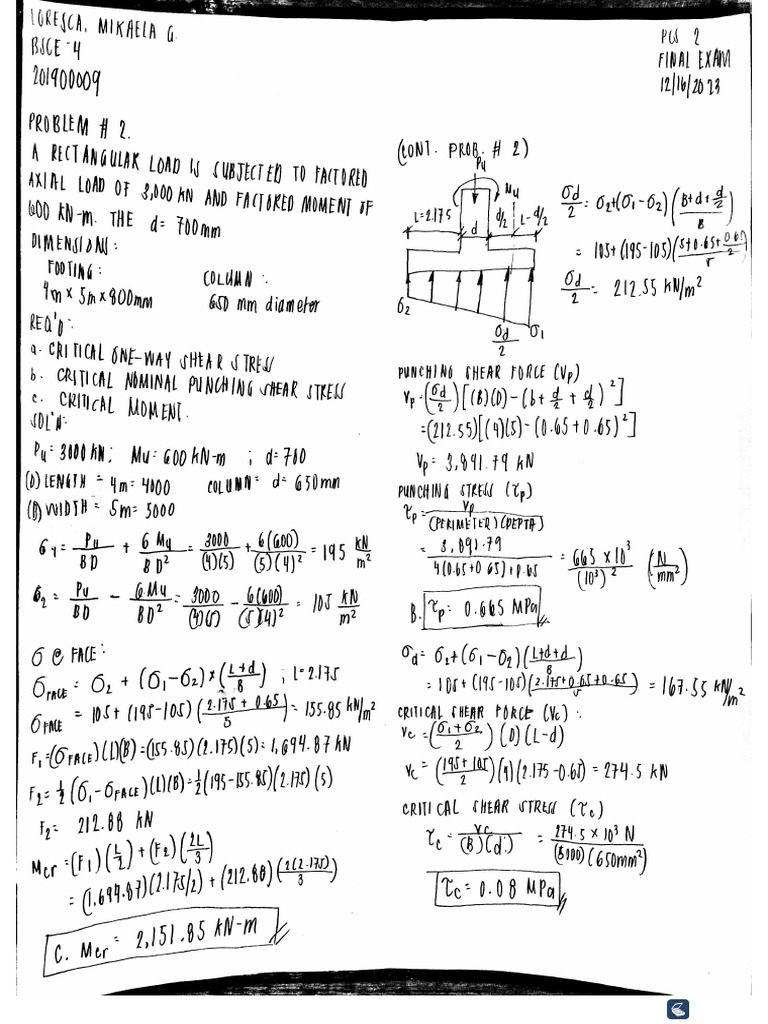 LORESCA, MIKAELA G.
BSCE-4
201900009
PCS 2
FINAL EXAM
12/16/2023
PROBLEM # 2.
A RECTANGULAR LOAD IS SUBJECTED TO FACTORED
AXIAL LOAD OF 3,000 KN AND FACTORED MOMENT OF
600 KN-m. THE d= 700mm
DIMENSIONS:
FOOTING: COLUMN:
4m x 5m x 800mm 650 mm diameter
REQ'D:
a. CRITICAL ONE-WAY SHEAR STRESS
b. CRITICAL NOMINAL PUNCHING SHEAR STRESS
c. CRITICAL MOMENT.
SOL'N:
Pu = 3000 KN; Mu = 600 KN-m ; d= 700
(D) LENGTH = 4m = 4000 COLUMN = d = 650mm
(B) WIDTH = 5m = 5000
σ1 = Pu/BD + 6Mu/BD² = 3000/(4)(5) + 6(600)/(5)(4)² = 195 KN/m²
σ2 = Pu/BD - 6Mu/BD² = 3000/(4)(5) - 6(600)/(5)(4)² = 105 KN/m²
σ @ FACE:
σFACE = σ2 + (σ1-σ2) x (L+d/B) ; L= 2.175
σFACE = 105 + (195-105) (2.175 + 0.65/5) = 155.85 KN/m²
F1 = (σFACE)(L)(B) = (155.85)(2.175)(5) = 1,694.87 KN
F2 = 1/2 (σ1-σFACE)(L)(B) = 1/2 (195-155.85)(2.175)(5)
F2 = 212.88 KN
Mcr = (F1)(L/2) + (F2)(2L/3)
= (1,694.87)(2.175/2) + (212.88)(2(2.175)/3)
C. Mcr = 2,151.85 KN-m
(CONT. PROB. # 2)
Pu
Mu
L=2.175 d/2 L-d/2
d
σ2
σd/2 σ1
σd/2 = σ2+(σ1-σ2)(B+d+d/2/B)
= 105+(195-105)(5+0.65+0.65/2/5)
σd/2 = 212.55 KN/m²
PUNCHING SHEAR FORCE (Vp)
Vp = (σd/2)[(B)(D)-(b+d/2+d/2)²]
= (212.55)[(4)(5)-(0.65+0.65)²]
Vp = 3,891.79 KN
PUNCHING STRESS (τp)
τp = Vp/(PERIMETER)(DEPTH)
= 3,891.79/4(0.65+0.65)+0.65 = 665 x 10³/(10³)² (N/mm²)
B. τp = 0.665 MPa
σd = σ2+(σ1-σ2)(L+d+d/B)
= 105+(195-105)(2.175+0.65+0.65/5) = 167.55 KN/m²
CRITICAL SHEAR FORCE (Vc) :
Vc = (σ1+σ2/2)(D)(L-d)
Vc = (195+105/2)(4)(2.175-0.65) = 274.5 KN
CRITICAL SHEAR STRESS (τc)
τc = Vc/(B)(d) = 274.5 x 10³ N/(5000)(650mm²)
τc = 0.08 MPa